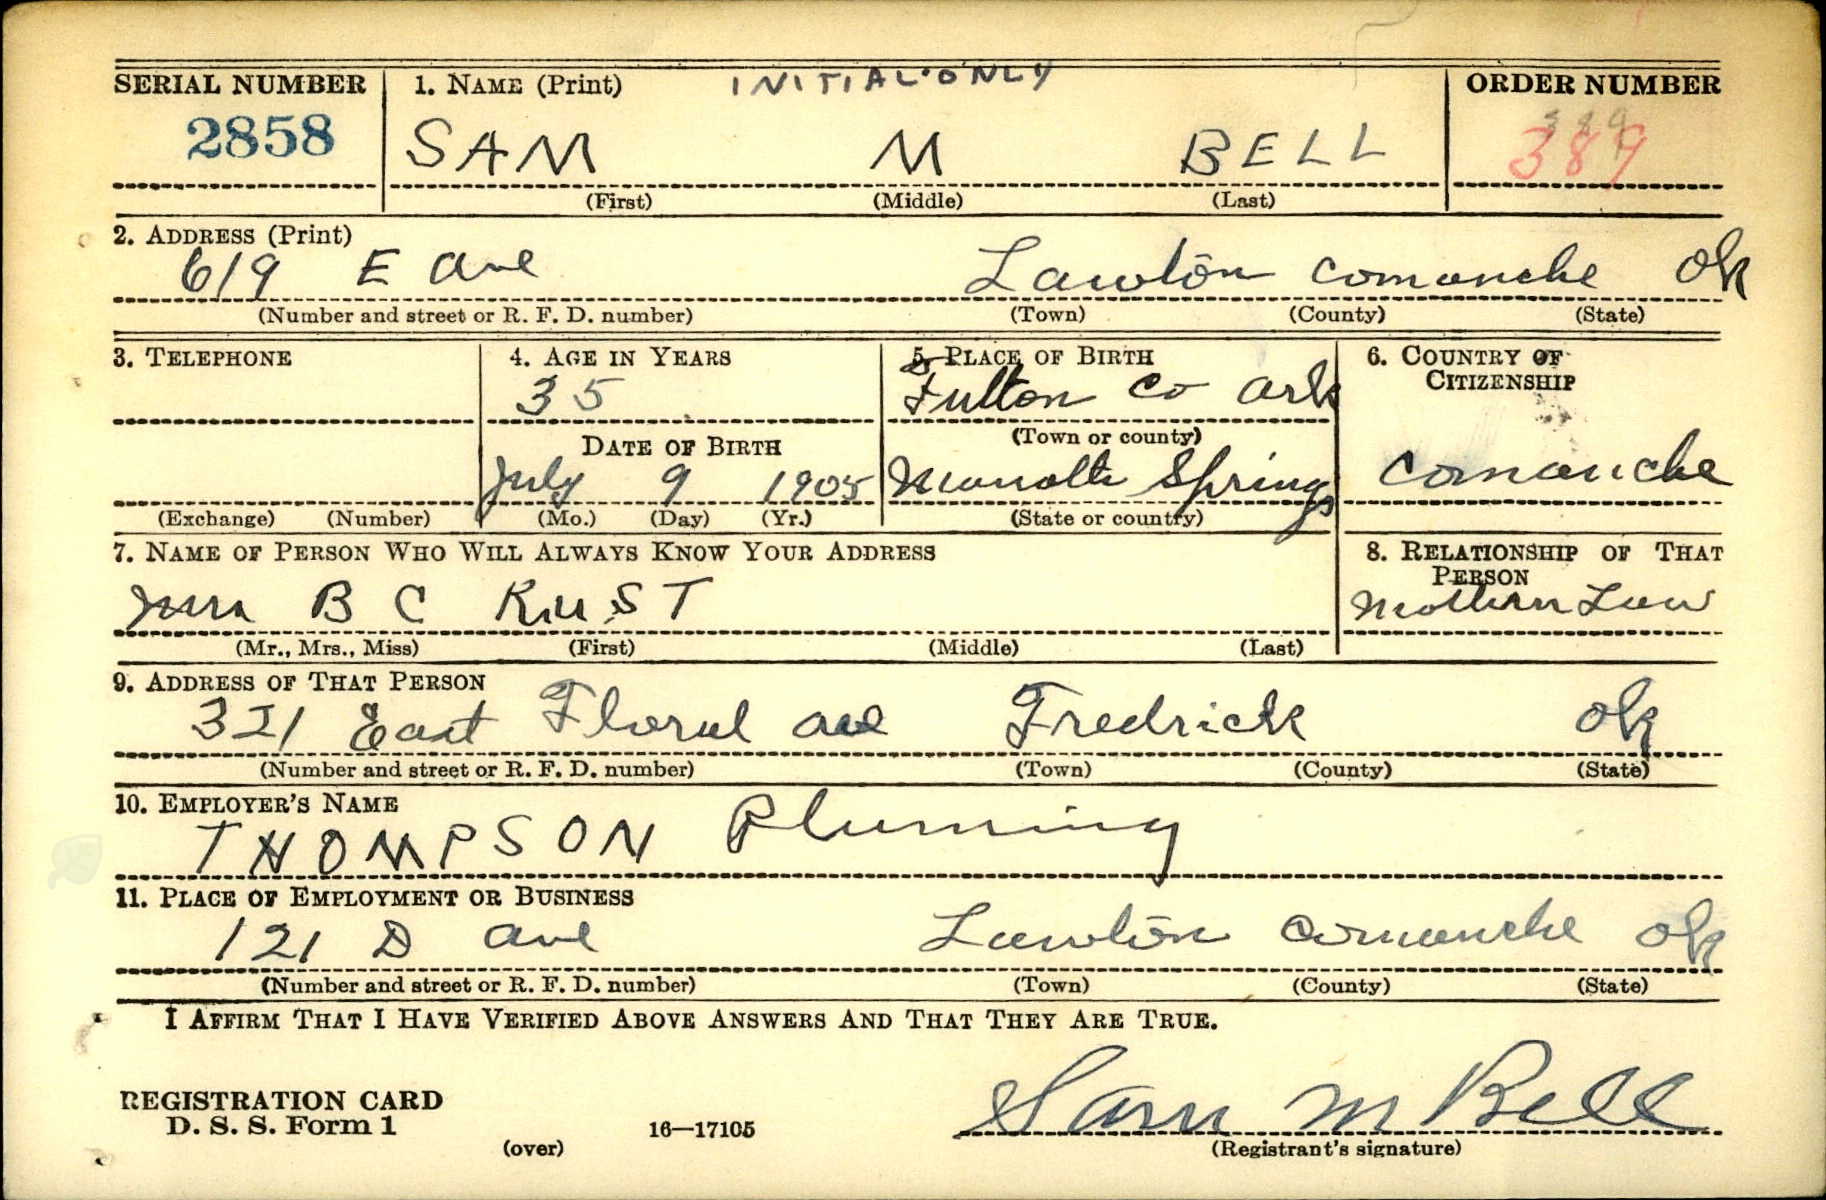 SERIAL NUMBER 1. NAME (Print) INITIAL ONLY ORDER NUMBER
2858 SAM M BELL 389 389
(First) (Middle) (Last)
2. ADDRESS (Print)
619 E ave Lawton comanche Ok
(Number and street or R. F. D. number) (Town) (County) (State)
3. TELEPHONE 4. AGE IN YEARS 5. PLACE OF BIRTH 6. COUNTRY OF CITIZENSHIP
35 Fulton Co Ark
(Town or county)
DATE OF BIRTH
July 9 1905 Springs comanche
(Exchange) (Number) (Mo.) (Day) (Yr.) (State or country)
7. NAME OF PERSON WHO WILL ALWAYS KNOW YOUR ADDRESS 8. RELATIONSHIP OF THAT PERSON
mrs B C RUST Law
(Mr., Mrs., Miss) (First) (Middle) (Last)
9. ADDRESS OF THAT PERSON
321 East Floral ave Fredrick Ok
(Number and street or R. F. D. number) (Town) (County) (State)
10. EMPLOYER'S NAME
THOMPSON Pluming
11. PLACE OF EMPLOYMENT OR BUSINESS
121 D ave Lawton Comanche Ok
(Number and street or R. F. D. number) (Town) (County) (State)
I AFFIRM THAT I HAVE VERIFIED ABOVE ANSWERS AND THAT THEY ARE TRUE.
REGISTRATION CARD
D. S. S. Form 1 16—17105 Sam M Bell
(over) (Registrant's signature)